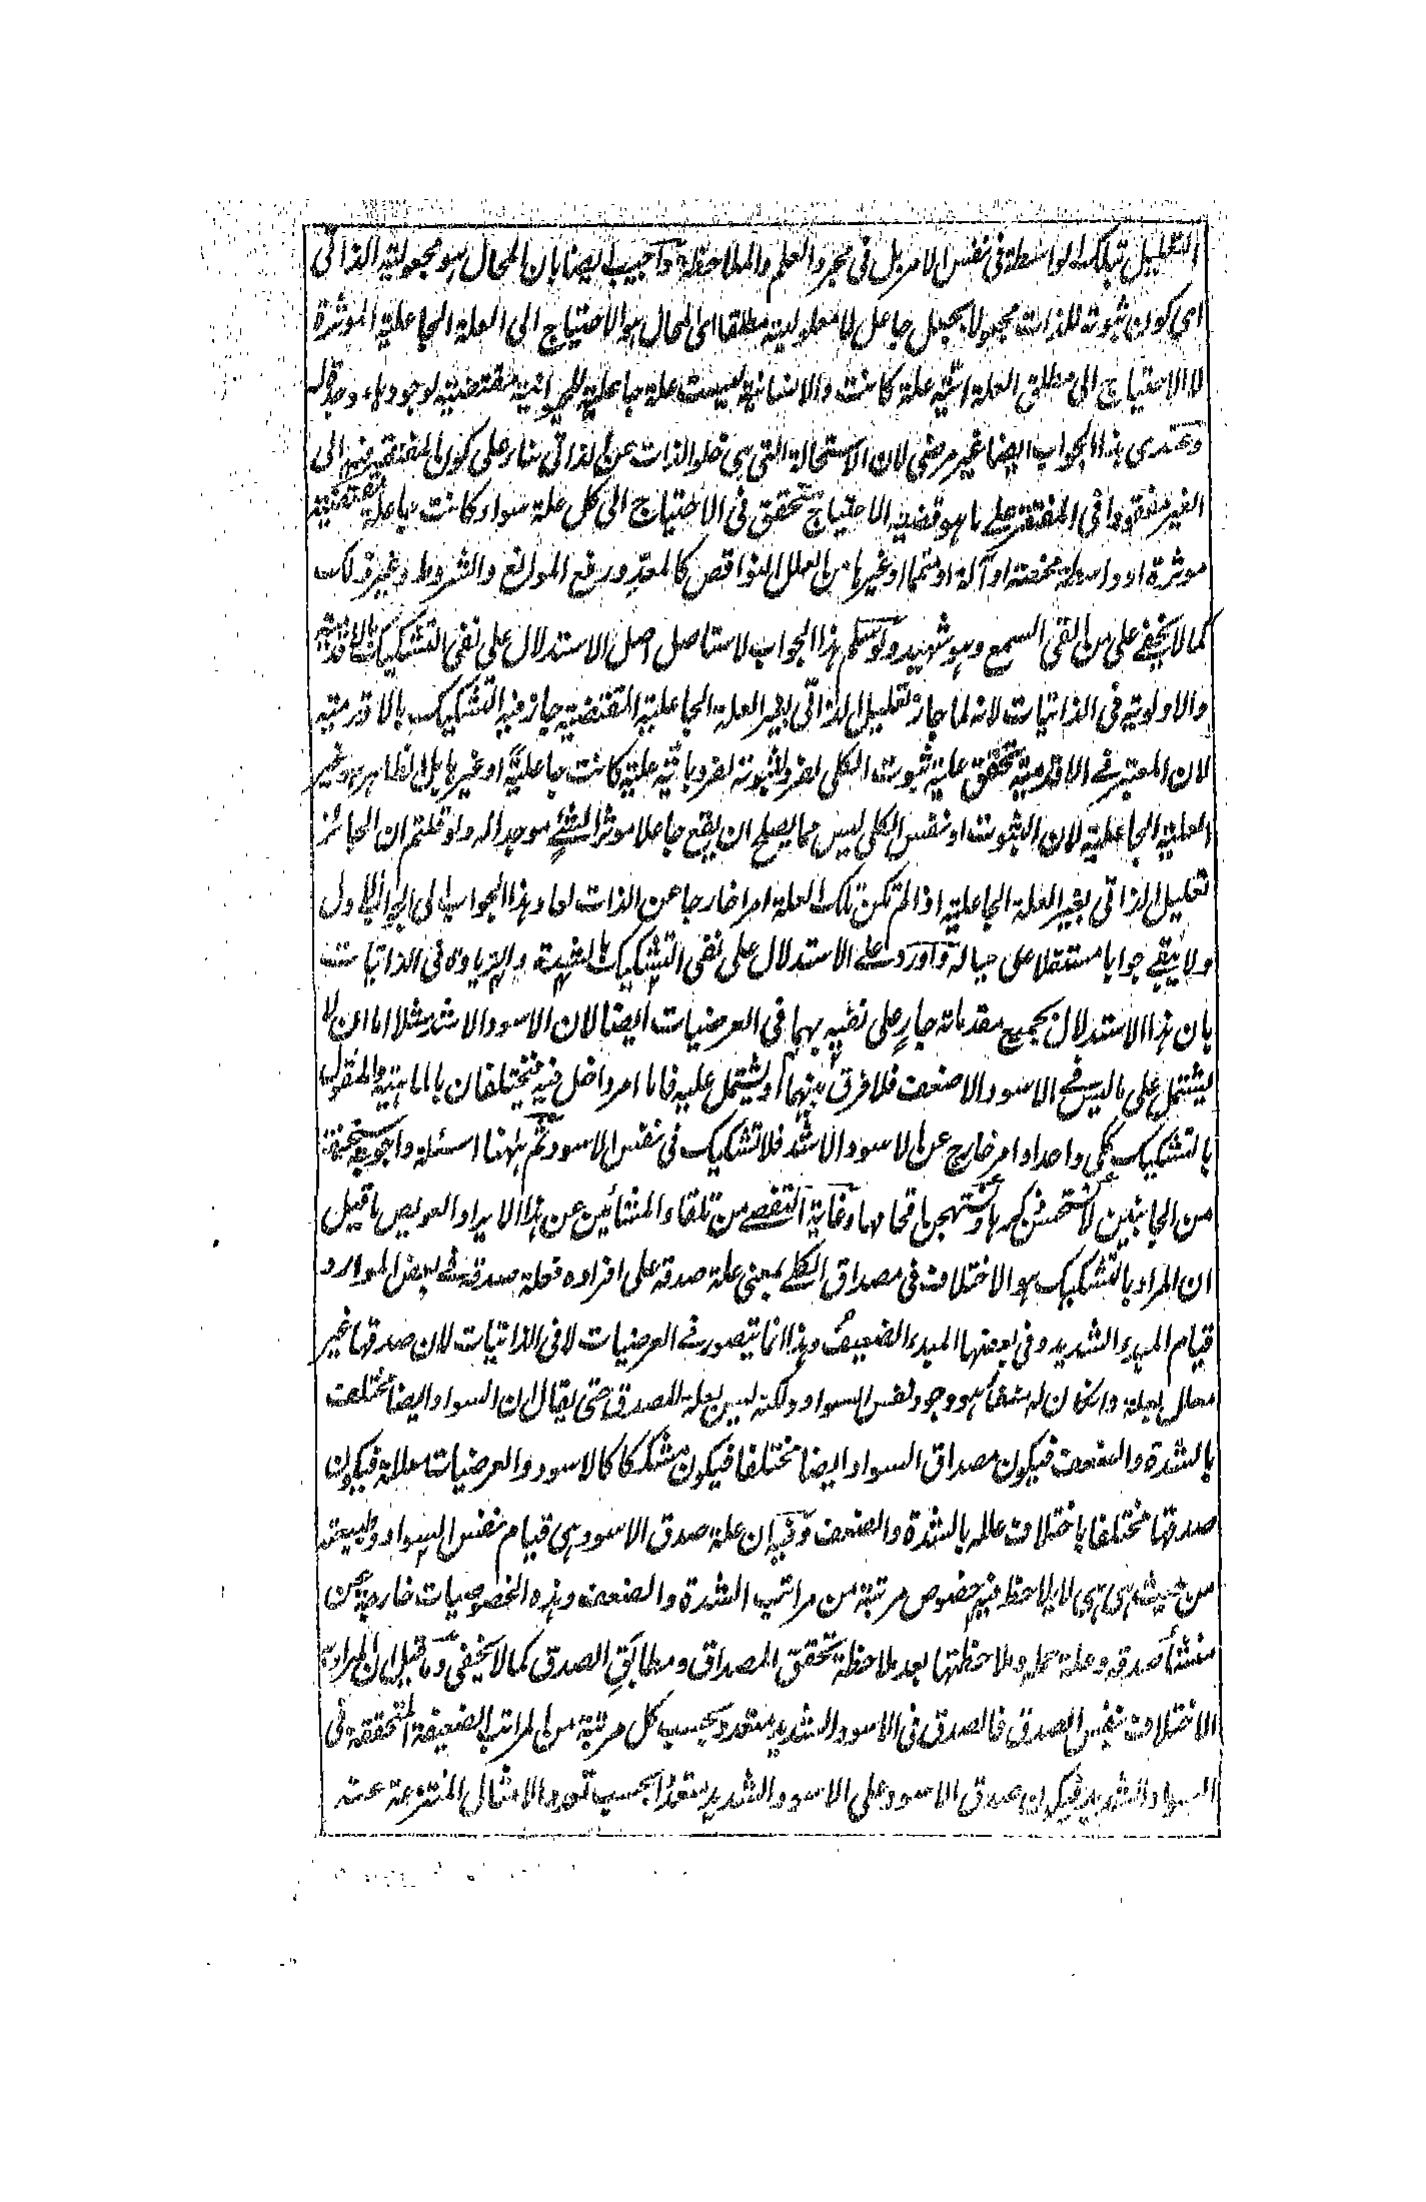 التعليل بتلك الواسطة في نفس الامر بل في مجرد العلم والملاحظة واجيب ايضا بان المحال هو مجعولية الذاتي
اي كون ثبوته للذات مجعولا بجعل جاعل لا معلوليته مطلقا اي المحال هو الاحتياج الى العلة الجاعلية الموثرة
لا الاحتياج الى مطلق العلة اية علة كانت والانسانية ليست علة جاعلية للحيوانية مقتضية لوجودها
وعندي هذا الجواب ايضا غير مرضي لان الاستحالة التي هي خلو الذات عن الذاتي بناء على كون المفتقر فيه الى
الغير مفقودا في المفتقر على ما هو قضية الاحتياج تتحقق في الاحتياج الى كل علة سواء كانت جاعلة مقتضية
موثرة او واسطة محضة او آلة او متمما او غيرها من العلل النواقص كالمعد ورفع الموانع والشروط وغير ذلك
كما لا يخفى على من القى السمع وهو شهيد ولو سلم هذا الجواب لاستاصل اصل الاستدلال على نفي التشكيك بالاقدمية
والاولوية في الذاتيات لانه لما جاز تعليل الذاتي بغير العلة الجاعلية المقتضية جاز فيه التشكيك بالاقدمية
لان المعتبر في الاقدمية تحقق علية ثبوت الكلي لفرد لثبوته لفرد باية علية كانت جاعلية او غيرها بل الظاهر هو غير
العلية الجاعلية لان الثبوت او نفس الكلي ليس مما يصلح ان يقع جاعلا موثرا لشئ موجدا له ولو قلتم ان الجائز
تعليل الذاتي بغير العلة الجاعلية اذا لم تكن تلك العلة امرا خارجا عن الذات لعاد هذا الجواب الى الجواب الاول
ولا يبقى جوابا مستقلا على حياله واورد على الاستدلال على نفي التشكيك بالشدة والزيادة في الذاتيات
بان هذا الاستدلال بجميع مقدماته جار على نفيه بهما في العرضيات ايضا لان الاسود الاشد مثلا اما ان لا
يشتمل على ما ليس في الاسود الاضعف فلا فرق بينهما او يشتمل عليه فاما امر داخل فيه فيختلفان بالماهية والمقول
بالتشكيك كلي واحد او امر خارج عن الاسود الاشد فلا تشكيك في نفس الاسود ثم ههنا اسئلة واجوبة
من الجانبين وغاية التفصي من تلقاء المشائين عن هذا الايراد العويص ما قيل
ان المراد بالتشكيك هو الاختلاف في مصداق الكلي بمعنى علة صدقه على افراده فعلة صدقه في بعض الموارد
قيام المبدء الشديد وفي بعضها المبدء الضعيف وهذا انما يتصور في العرضيات لا في الذاتيات لان صدقها غير
معلل بعلة وان كان له منشأ هو وجود نفس السواد ولكنه ليس بعلة للصدق حتى يقال ان السواد ايضا مختلف
بالشدة والضعف فيكون مصداق السواد ايضا مختلفا فيكون مشككا كالاسود والعرضيات معللة فيكون
صدقها مختلفا باختلاف علله بالشدة والضعف وفيه ان علة صدق الاسود هي قيام نفس السواد وطبيعته
من حيث هي هي لا يلاحظ فيه خصوص مرتبة من مراتب الشدة والضعف وهذه الخصوصيات خارجة عن
منشأ صدقه وعلة حمله وملاحظتها بعد ملاحظة تحقق المصداق ومطابق الصدق كما لا يخفى وما قيل ان المراد
الاختلاف بنفس الصدق فالصدق في الاسود الشديد متعدد بحسب كل مرتبة من المراتب الضعيفة المتحققة في
السواد الشديد فيكون صدق الاسود على الاسود الشديد متعددا بحسب تعدد الامثال المنتزعة عنه